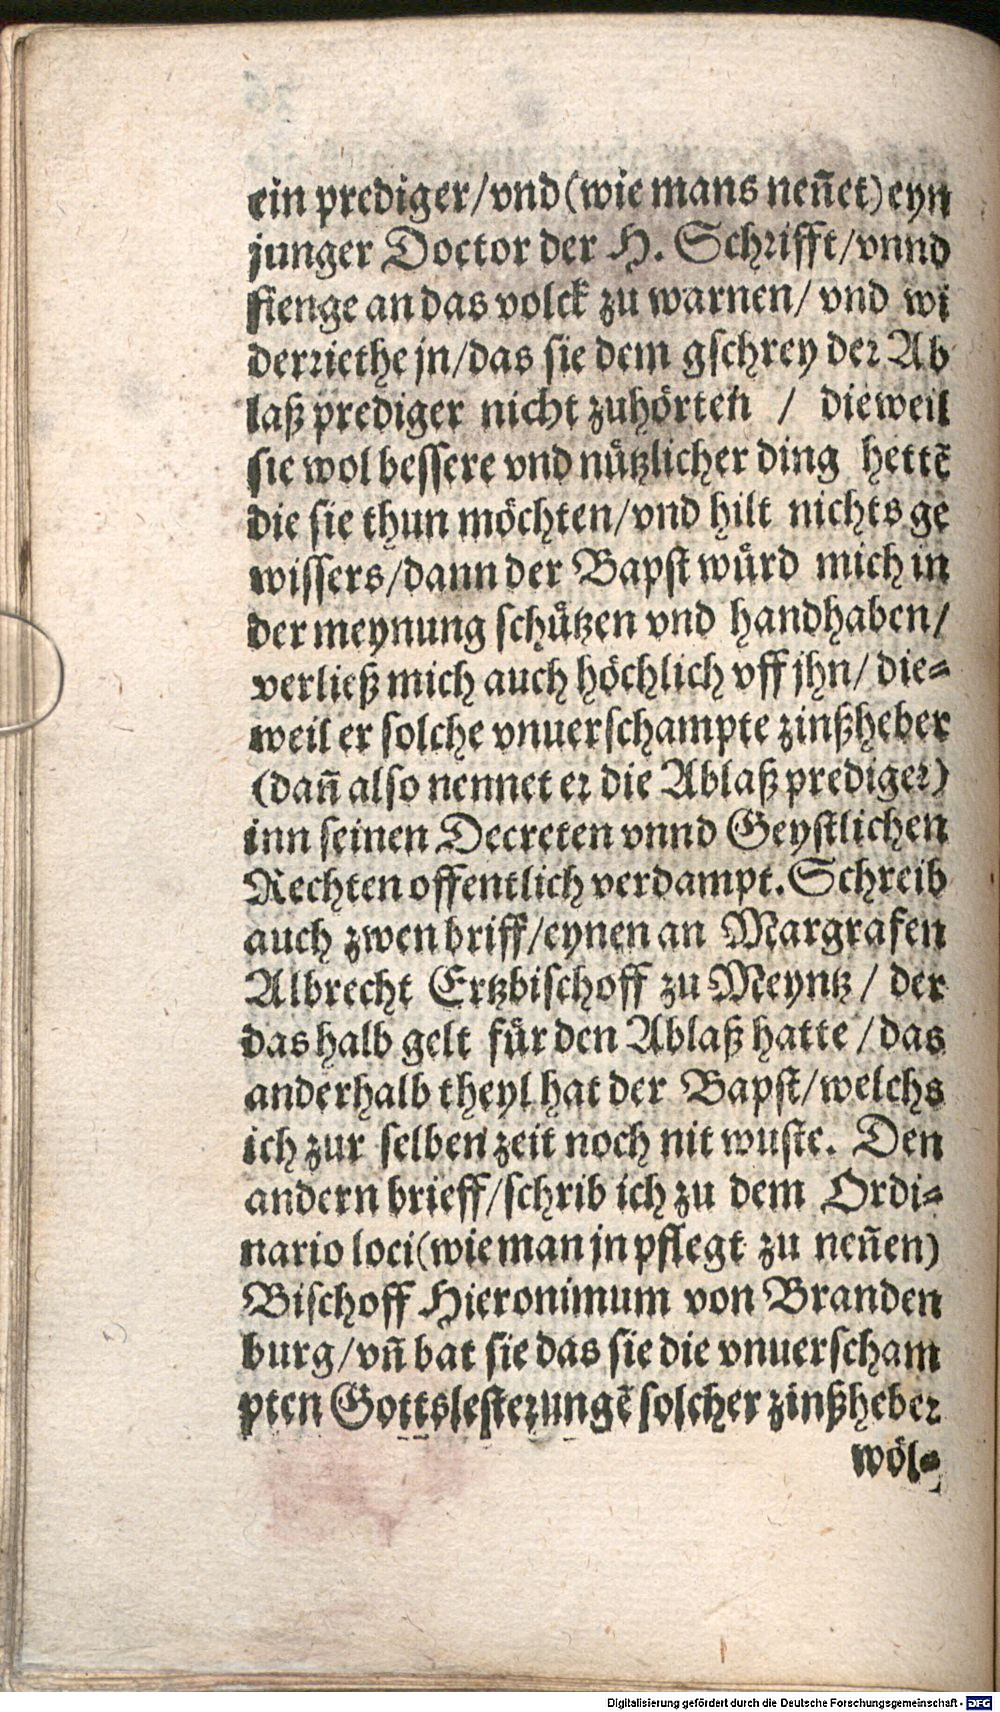 ein prediger/vnd (wie mans neñet) eyn
junger Doctor der H. Schrifft/vnnd
fienge an das volck zu warnen/ vnd wi
derriethe jn/das sie dem gschrey der Ab
laß prediger nicht zuhörten / dieweil
sie wol bessere vnd nützlicher ding hettẽ
die sie thun möchten/vnd hilt nichts ge
wissers/dann der Bapst würd mich in
der meynung schützen vnd handhaben/
verließ mich auch höchlich vff jhn/ die-
weil er solche vnuerschampte zinßheber
(dañ also nennet er die Ablaß prediger)
inn seinen Decreten vnnd Geystlichen
Rechten offentlich verdampt. Schreib
auch zwen briff/eynen an Margrafen
Albrecht Ertzbischoff zu Meyntz / der
das halb gelt für den Ablaß hatte / das
anderhalb theyl hat der Bapst/welchs
ich zur selben zeit noch nit wuste. Den
andern brieff/schrib ich zu dem Ordi-
nario loci (wie man jn pflegt zu neñen)
Bischoff Hieronimum von Branden
burg/vñ bat sie das sie die vnuerscham
pten Gottslesterungẽ solcher zinßheber
wöl-
Digitalisierung gefördert durch die Deutsche Forschungsgemeinschaft - DFG